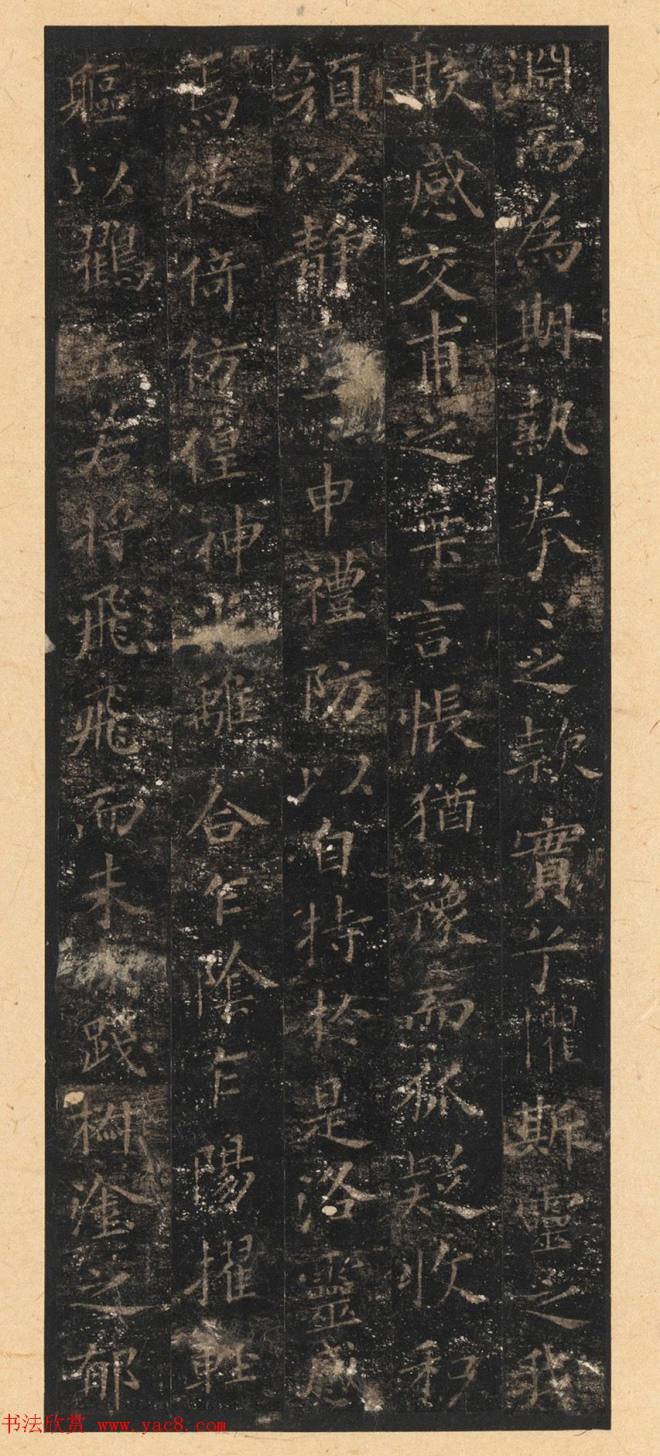 淵而為期執拳〻之款實兮懼斯靈之我
欺感交甫之弃言悵猶豫而狐疑收和
顏以靜志兮申禮防以自持於是洛靈感
焉徙倚仿偟神光離合乍陰乍陽擢輕
軀以鶴立若将飛飛而未翔踐椒塗之郁
书法欣赏 www.yac8.com